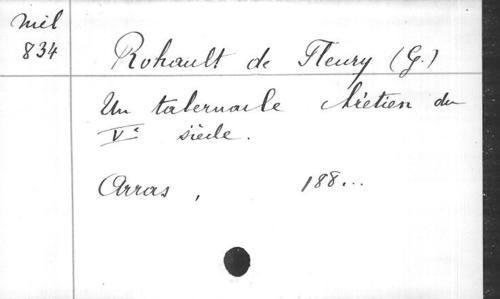 Mél
834
Rohault de Fleury (G.)
Un tabernacle chrétien du
Ve siècle.
Arras, 188...